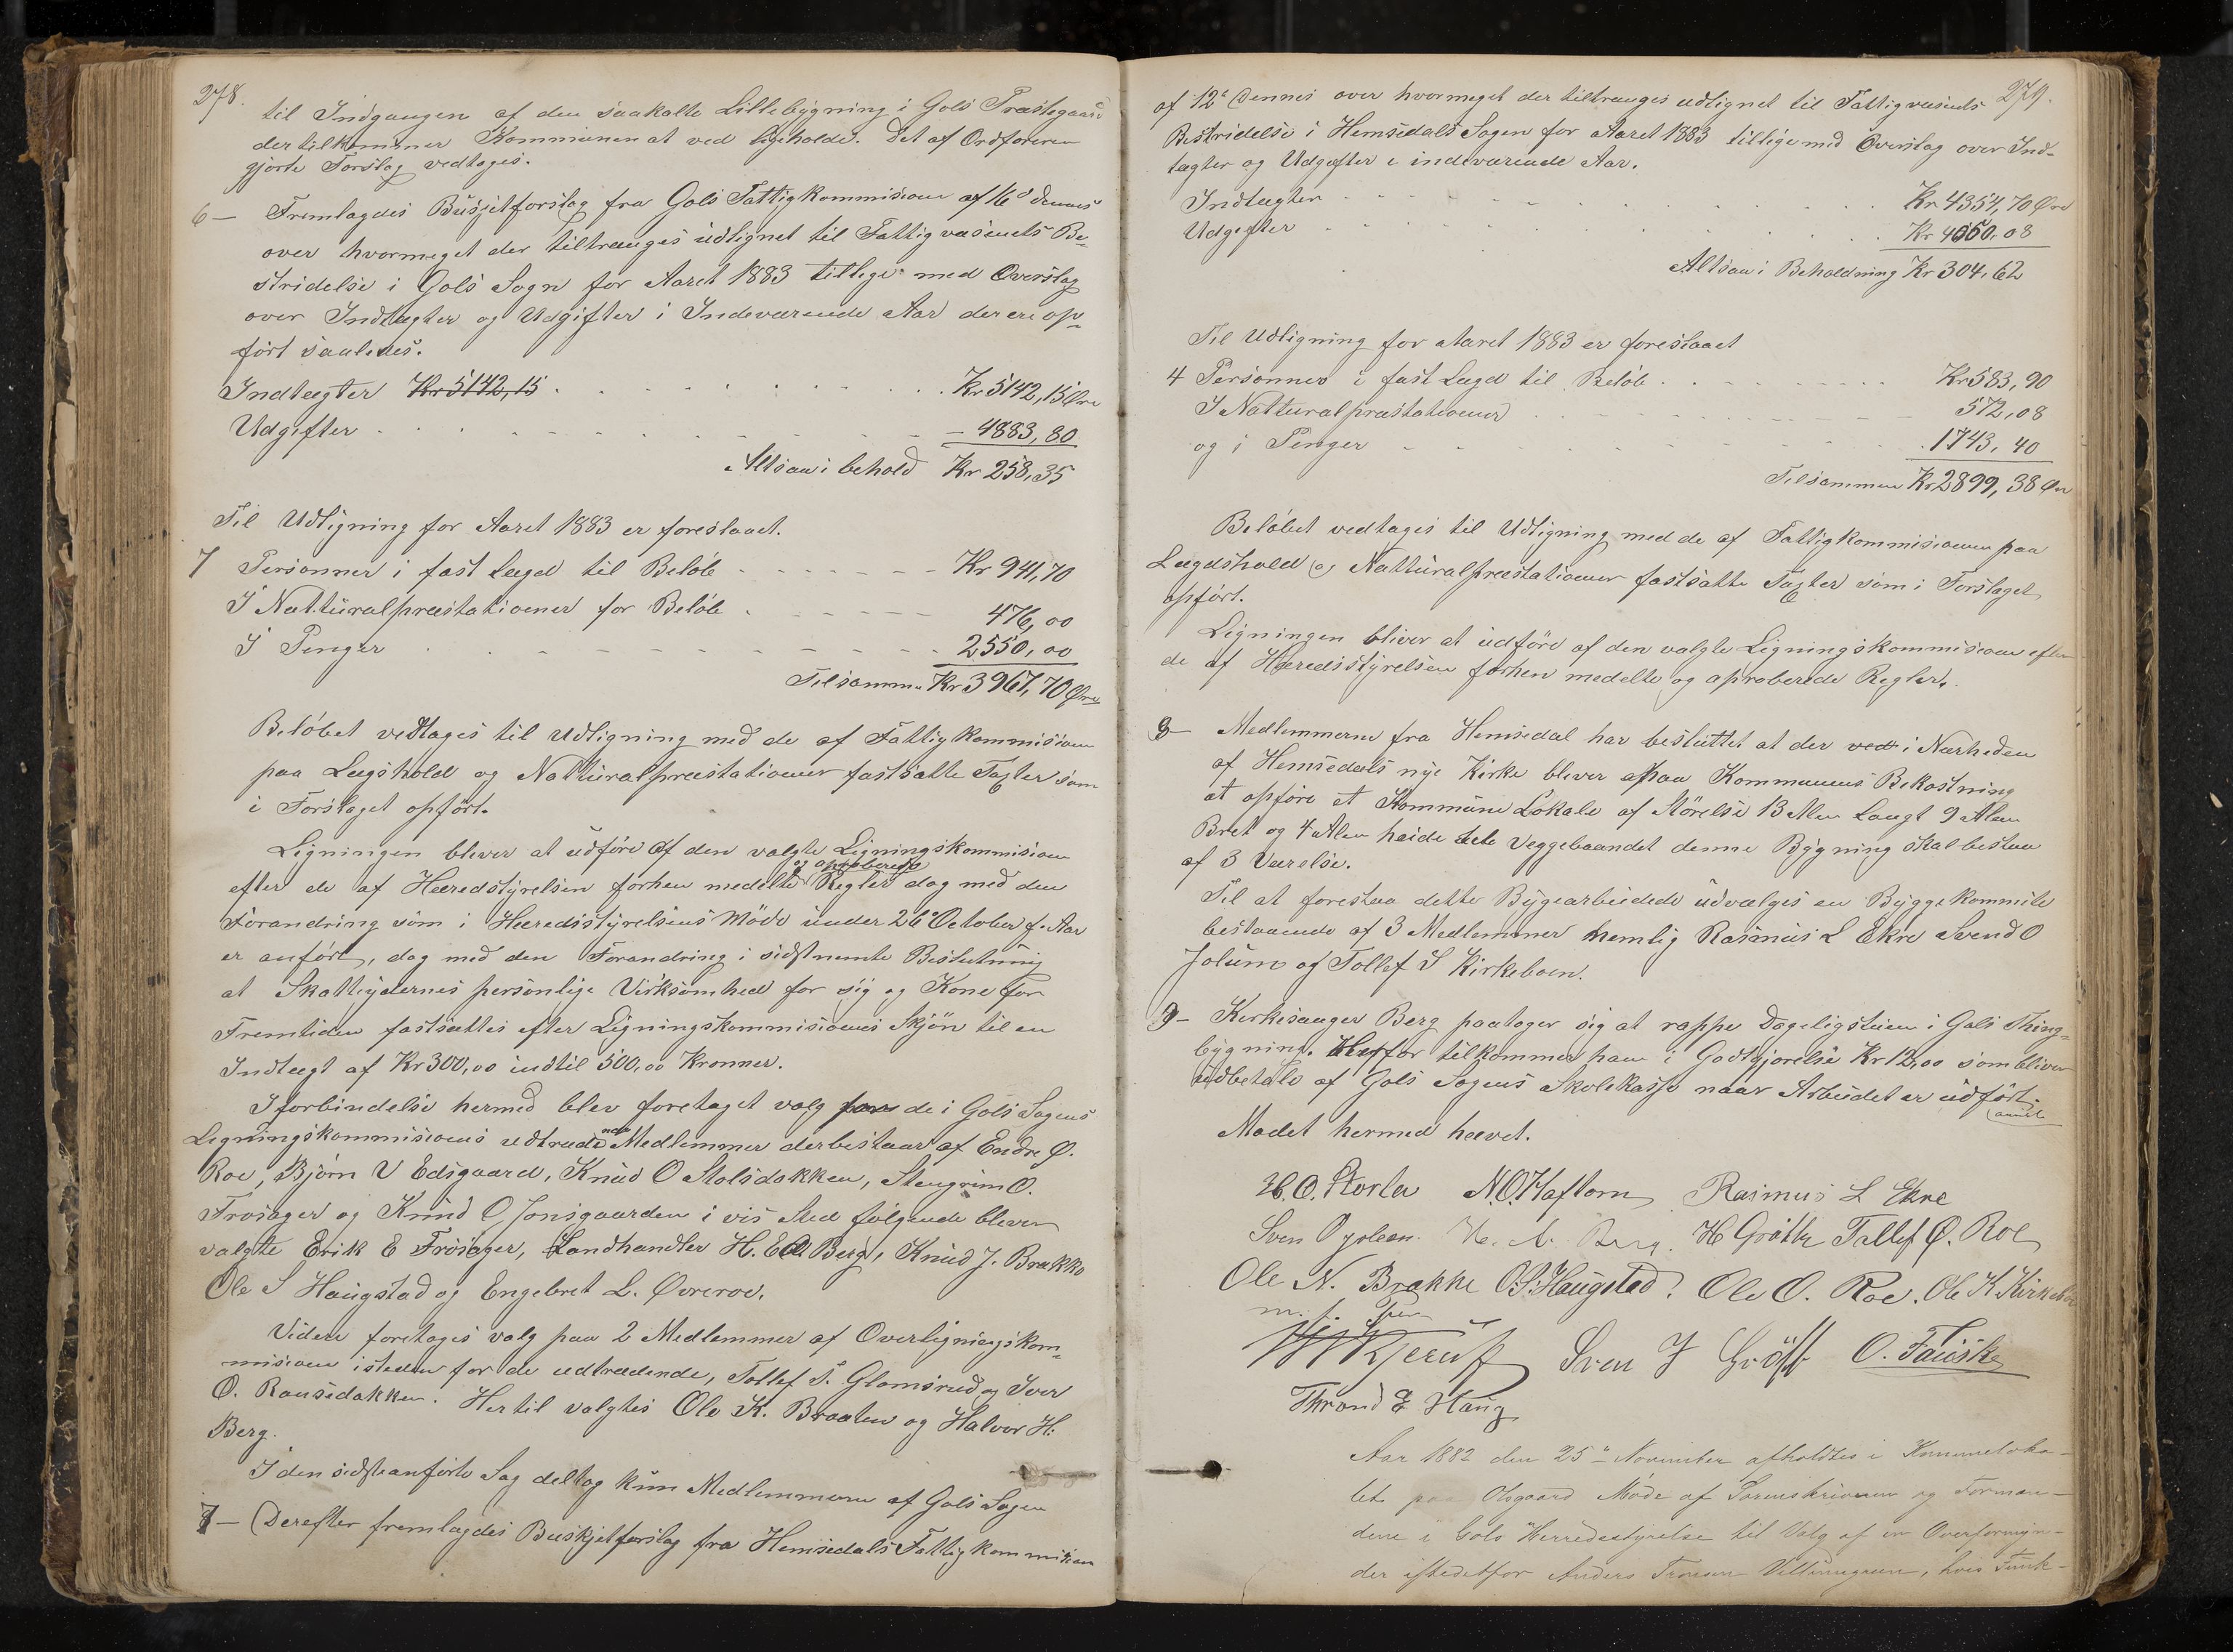 278.
til Indgangen af den saakalte Lillebygning i Gols Præstegaard
der tilkommer Kommunen at ved ligeholde. Det af Ordføreren
gjorte Forslag vedtages.
6 — Fremlagdes Busjetforslag fra Gols Fattigkommision af 16de dennes
over hvormeget der tiltrænges udlignet til Fattigvæsenets Be-
stridelse i Gols Sogn for Aaret 1883 tillige med Overslag
over Indtægter og Udgifter i Indeværende Aar der ere op-
ført saaledes.
Indtægter Kr 5142,15 . . . . Kr 5142,15 Øre
Udgifter . . . . — 4883,80
Altsaa i behold Kr 258,35
Til Udligning for Aaret 1883 er foreslaaet.
7 Personner i fast Lægd til Beløb - - - Kr 941,70
I Natturalpræstationer for Beløb - - - 476,00
I Penger - - - 2550,00
Tilsamm. Kr 3967,70 Øre
Beløbet vedtages til Udligning med de af Fattigkommision
paa Lægshold og Natturalpræstationer fastsatte Taxter som
i Forslaget opført.
Ligningen bliver at udføre af den valgte Ligningskommision
og approberede
efter de af Heredstyrelsen forhen medelte Regler dog med den
Forandring som i Heredsstyrelsens Møde under 26de October f. Aar
er anført, dog med den Forandring i sidstnemte Beslutning
at Skatteydernes personlige Virksomhed for sig og Kone for
Fremtiden fastsættes efter Ligningskommisionens Skjøn til en
Indtægt af Kr 300,00 indtil 500,00 Kronner.
I forbindelse hermed blev foretaget valg for de i Gols Sogens
Ligningskommisions udtrædende Medlemmer der bestaar af Endre Ø.
Roe, Bjørn V Edsgaard, Knud O Stolsdokken, Stengrim O.
Frosager og Knud O Jonsgaarden i vis Sted følgende bleven
valgte Erik E Frøsager, Landhandler H. E Berg, Knud J. Brakke
Ole S Haugstad og Engebret L. Øvreroe.
Videre foretages valg paa 2 Medlemmer af Overligningskom-
mision isteden for de udtrædende, Tollef T. Glomsrud og Iver
O. Rousedokken. Hertil valgtes Ole K. Braaten og Halvor H.
Berg.
I den sidstanførte Sag deltog kun Medlemmerne af Gols Sogen
7 — Derefter fremlagdes Buskjetforslag fra Hemsedals Fattigkommision
279.
af 12te Dennes over hvormeget der tiltrænges udlignet til Fattigvæsents
Bestridelse i Hemsedals Sogen for Aaret 1883 tillige med Overslag over Ind-
tægter og Udgifter i indeværende Aar.
Indtægter - - - Kr 4354,70 Øre
Udgifter - - - Kr 4050,08
Altsaa i Beholdning Kr 304,62
Til Udligning for Aaret 1883 er foreslaaet
4 Personner i fast Lægd til Beløb - - - Kr 583,90
I Natturalpræstationer - - - 572,08
og i Penger - - - 1743,40
Tilsammen Kr 2899,38 Øre
Beløbet vedtages til Udligning med de af Fattigkommisionen paa
Lægdshold og Natturalpræstationer fastsatte Taxter som i Forslaget
opført.
Ligningen bliver at udføre af den valgte Ligningskommision efter
de af Heredsstyrelsen forhen medelte og aproberede Regler.
8 — Medlemmerne fra Hemsedal har besluttet at der ved i Nærheden
af Hemsedals nye Kirke bliver paa Kommunens Bekostning
at opføre et Kommune Lokale af Størelse 13 Alen Langt 9 Alen
Bret og 4 Alen høide hele veggebaandet denne Bygning skal bestaa
af 3 Værelse.
Til at forestaa dette Bygearbeidede udvælges en Byggekommite
bestaaende af 3 Medlemmer nemlig Rasmus L Ekre Svend O
Jolum og Tollef S Kirkeboen.
9 — Kirkesanger Berg paatager sig at rappe Dageligstuen i Gols Thing-
bygning. Herfor tilkommer ham i Godtgjørelse Kr 12,00 som bliver
udbetale af Gols Sogens Skolekasse naar Arbeidet er udført.
Mødet hermed hævet.
H. O. Storla N. O. Haftorn Rasmus L Ekre
Sven O H. A. Berg. H Grøtte Tollef Ø. Roe
Ole N. Brakke O. S. Haugstad. Ole O. Roe. Ole K. Kirkeboe
m. f. Pen
Kjerulf Sven J Grøtt O. Fauske
Thrond E Haug
Aar 1882 den 25de November afholdtes i Kommuneloka-
let paa Olsgaard Møde af Sorenskriveren og Forman-
dene i Gols Herredsstyrelse til Valg af en Overformyn-
der istedetfor Anders Tronsen , hvis Funk-